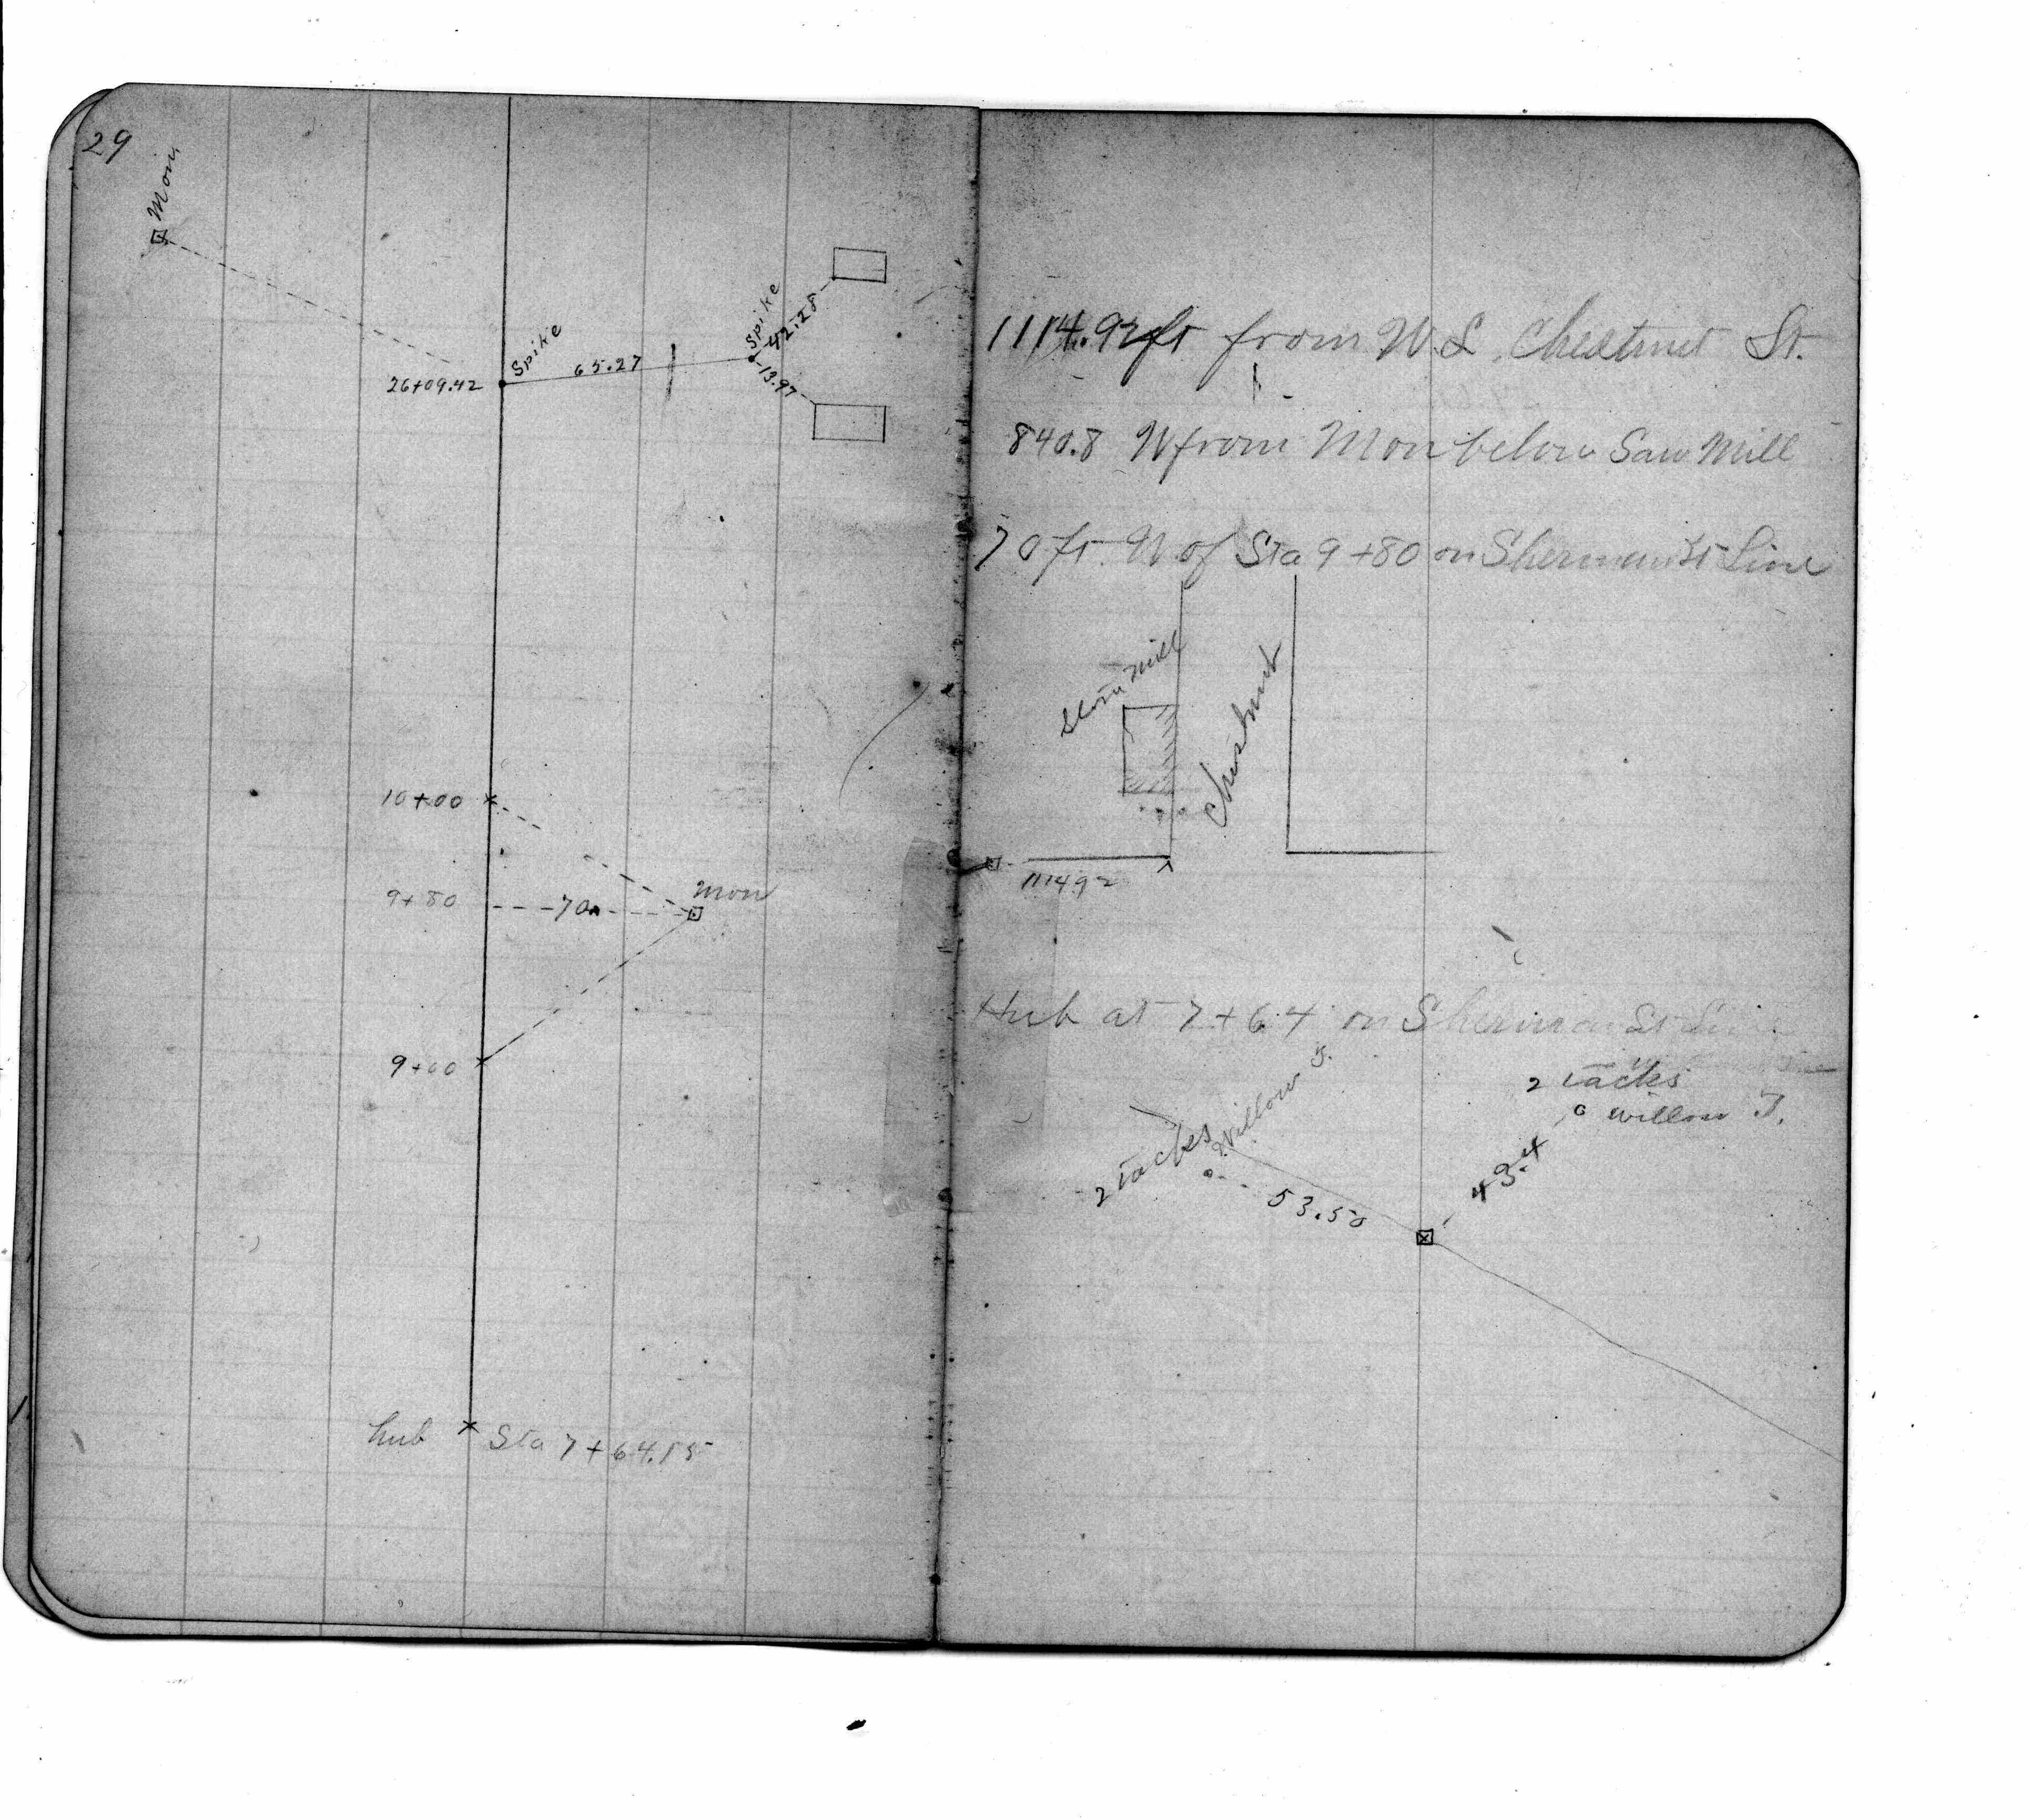 29
Mon
Spike
Spike
42.28
26+09.42
65.27
13.97
10+00
Mon
9+80
70
9+00
hub Sta 7+64.15
1114.92ft from W.L. Chestnut St.
840.8 W from Mon below Saw Mill
70 ft. W of Sta 9+80 on Sherman St Line
Mill
Chestnut
1114.92
Hub at 7+64 on Sherman St Line
2 Tacks
Willow
2 Tacks
Willow T.
53.50
43.4